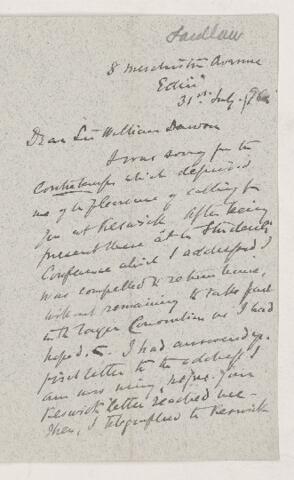 Laidlaw
8 Merchiston Avenue
Edinr
31st July
Dear Sir William Dawson
I was sorry for the
Contretemps which deprived
me of the pleasure of calling for
you at Keswick. After being
present there at the Students
Conference which I addressed I
was compelled to return home,
without remaining to take part
in the larger Convention as I had
hoped to. I had answered yr.
first letter to the address I
am now using, before your
Keswick letter reached me.
Then, I telegraphed to Keswick